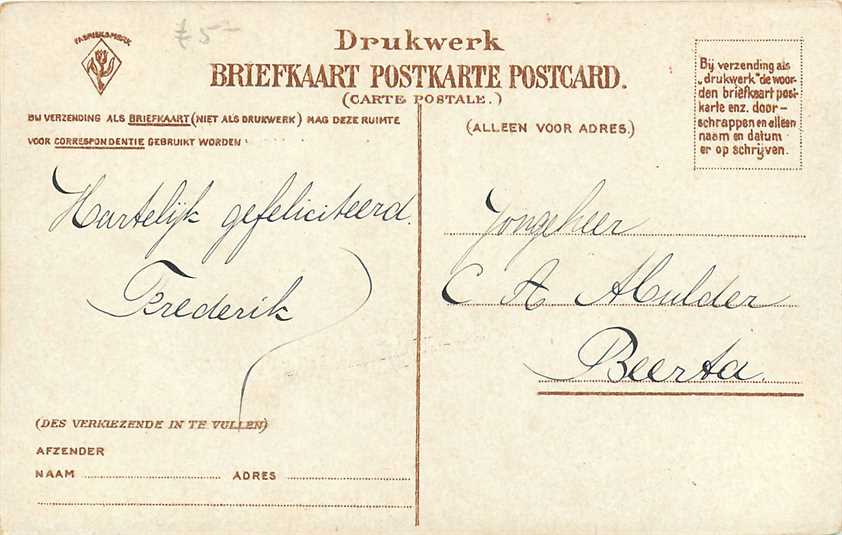 FABRIEKSMERK
£ 5-
Drukwerk
BRIEFKAART POSTKARTE POSTCARD.
(CARTE POSTALE.)
BIJ VERZENDING ALS BRIEFKAART (NIET ALS DRUKWERK) MAG DEZE RUIMTE
VOOR CORRESPONDENTIE GEBRUIKT WORDEN
(ALLEEN VOOR ADRES.)
Bij verzending als
„drukwerk" de woor-
den briefkaart post-
karte enz. door-
schrappen en alleen
naam en datum
er op schrijven.
Hartelijk gefeliciteerd.
Frederik
Jongeheer
C A Mulder
Beerta.
(DES VERKIEZENDE IN TE VULLEN)
AFZENDER
NAAM ADRES